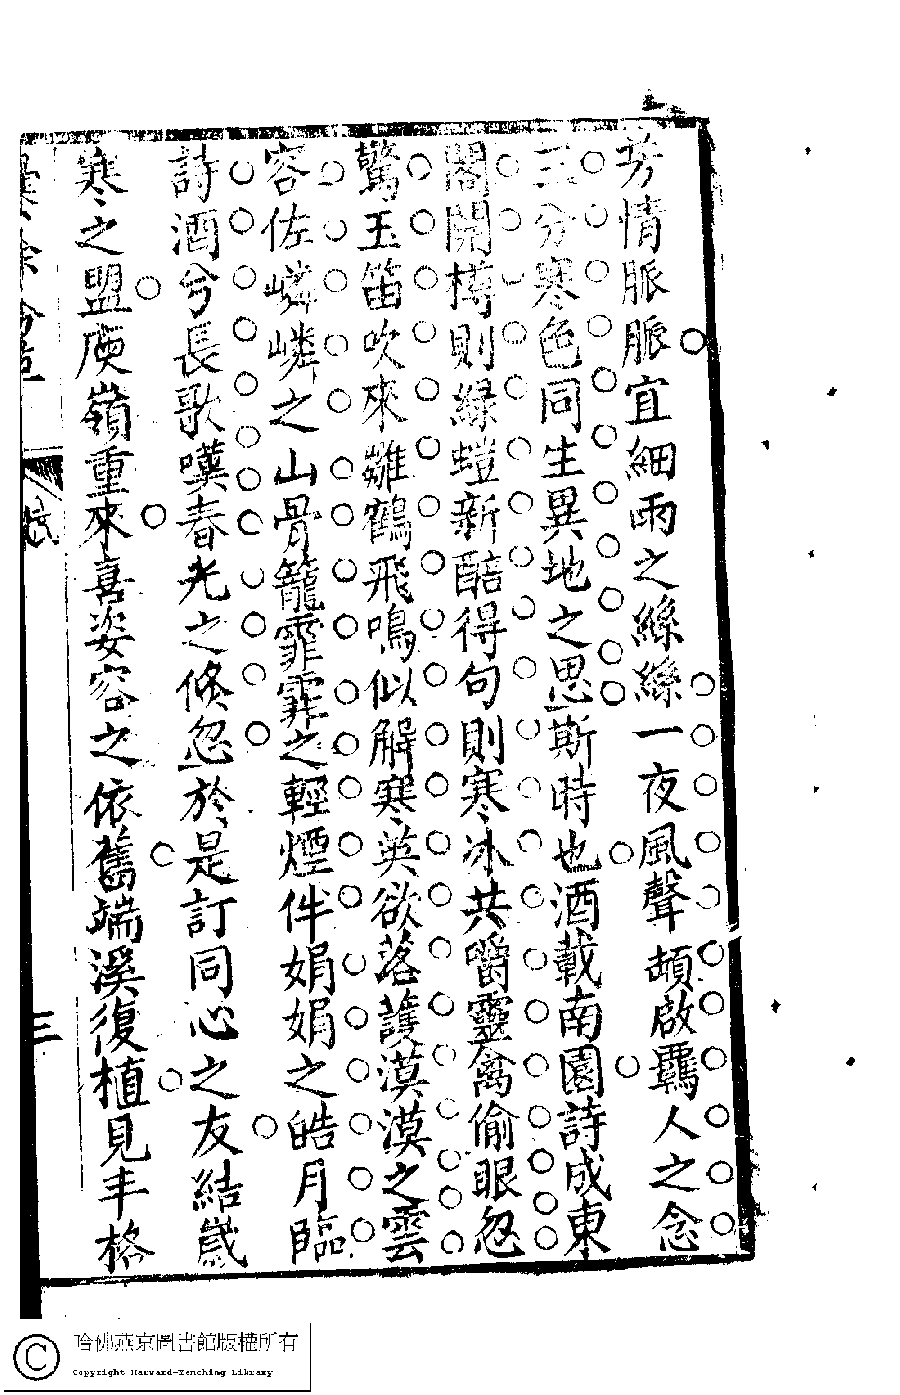 芳情脈脈宜細雨之絲絲一夜風聲頡啟覊人之念
三分寒色同生異地之思斯時也酒載南園詩成東
閣開樽則綠螘新醅得句則寒冰共嚼靈禽偷眼忽
驚玉笛吹來雛鶴飛鳴似解寒英欲落護漠漠之雲
容佐嶙嶙之山骨籠霏霏之輕煙伴娟娟之皓月臨
詩酒兮長歌嘆春光之倏忽於是訂同心之友結歲
寒之盟庾嶺重來喜姿容之依舊端溪復植見丰格
三
哈佛燕京圖書館版權所有
Copyright Harvard-Yenching Library